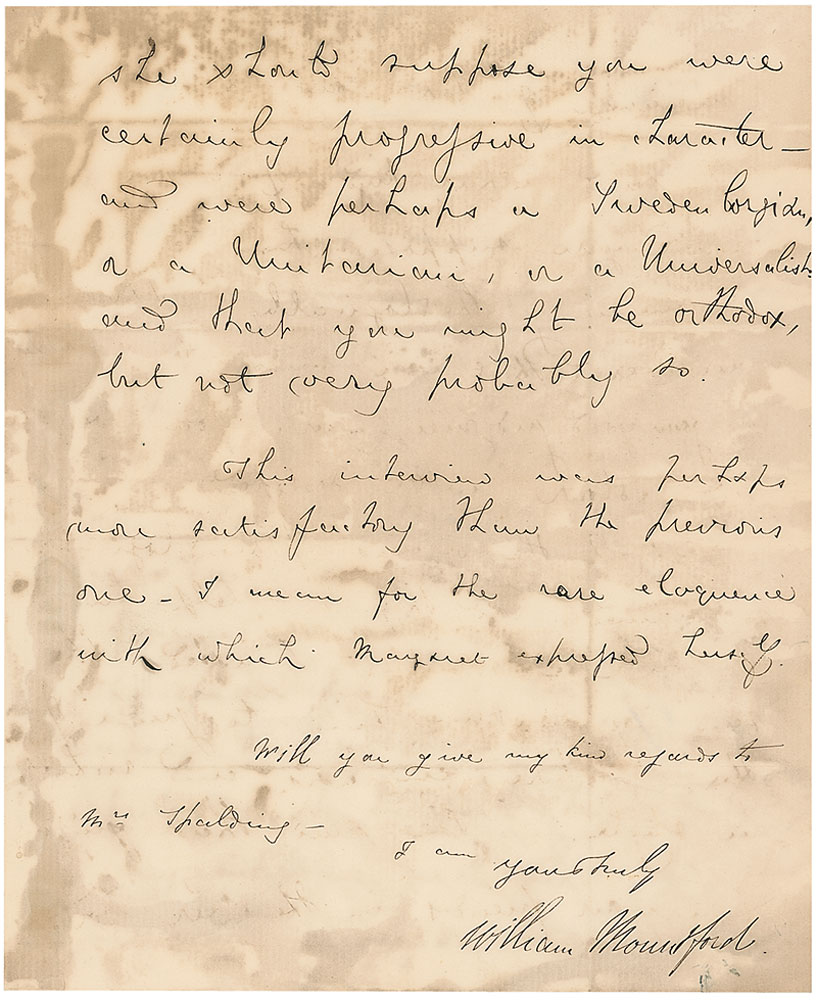 she should suppose you were
certainly progressive in character –
and were perhaps a Swedenborgian,
or a Unitarian, or a Universalist –
and that you might be orthodox,
but not very probably so.
This interview was perhaps
more satisfactory than the previous
one – I mean for the rare eloquence
with which Margaret expressed herself.
Will you give my kind regards to
Mrs Spalding –
I am
yours truly
William Mountford.